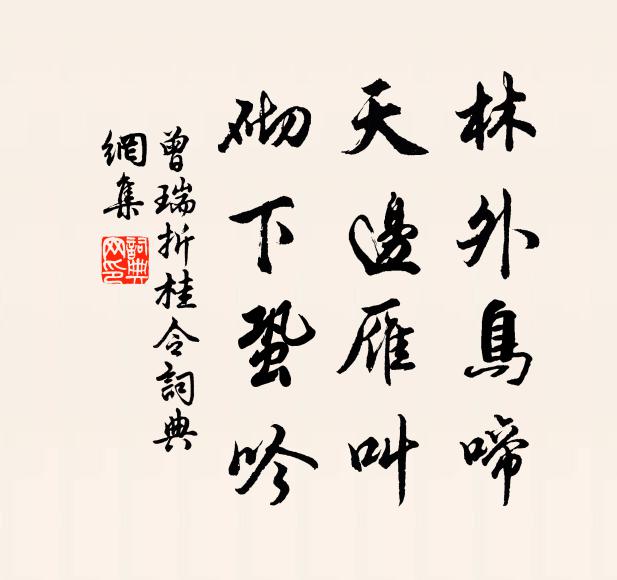 林外鳥啼
天邊雁叫
砌下蛩吟
曾瑞折桂令詞典
網集
詞典網印